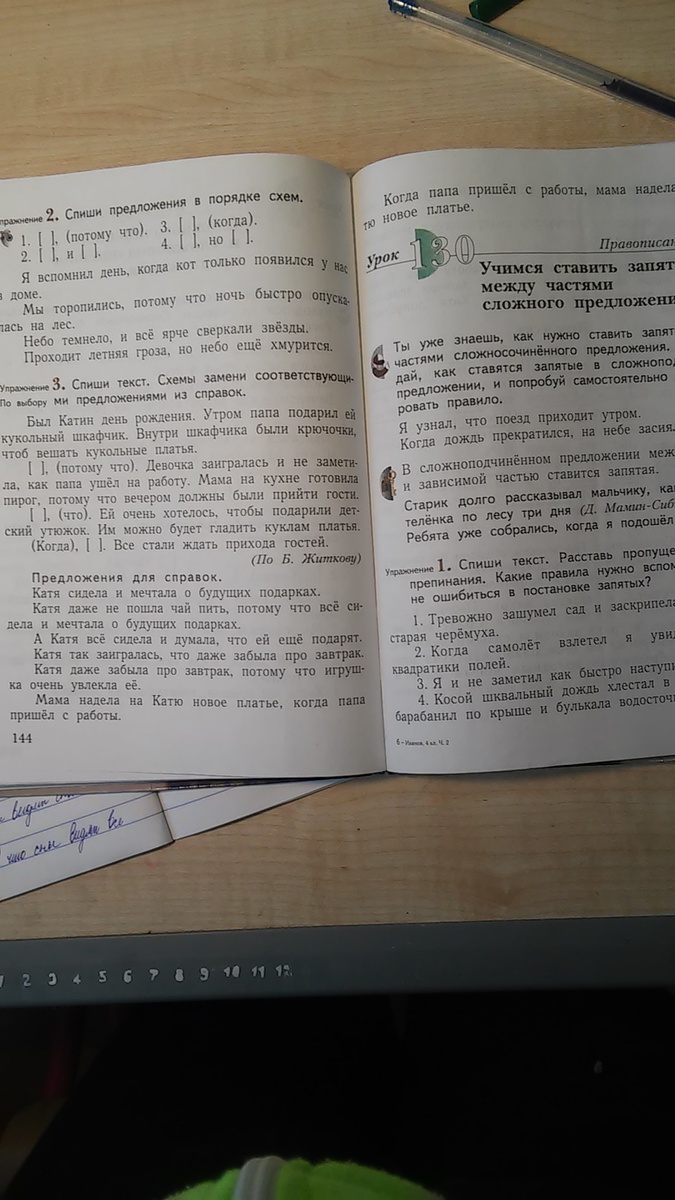 Упражнение 2. Спиши предложения в порядке схем.
1. [ ], (потому что). 3. [ ], (когда).
2. [ ], и [ ]. 4. [ ], но [ ].
Я вспомнил день, когда кот только появился у нас
в доме.
Мы торопились, потому что ночь быстро опуска-
лась на лес.
Небо темнело, и всё ярче сверкали звёзды.
Проходит летняя гроза, но небо ещё хмурится.
Упражнение 3. Спиши текст. Схемы замени соответствующи-
По выбору ми предложениями из справок.
Был Катин день рождения. Утром папа подарил ей
кукольный шкафчик. Внутри шкафчика были крючочки,
чтоб вешать кукольные платья.
[ ], (потому что). Девочка заигралась и не замети-
ла, как папа ушёл на работу. Мама на кухне готовила
пирог, потому что вечером должны были прийти гости.
[ ], (что). Ей очень хотелось, чтобы подарили дет-
ский утюжок. Им можно будет гладить куклам платья.
(Когда), [ ]. Все стали ждать прихода гостей.
(По Б. Житкову)
Предложения для справок.
Катя сидела и мечтала о будущих подарках.
Катя даже не пошла чай пить, потому что всё си-
дела и мечтала о будущих подарках.
А Катя всё сидела и думала, что ей ещё подарят.
Катя так заигралась, что даже забыла про завтрак.
Катя даже забыла про завтрак, потому что игруш-
ка очень увлекла её.
Мама надела на Катю новое платье, когда папа
пришёл с работы.
144
Когда папа пришёл с работы, мама надела
тю новое платье.
Урок 130
Правописан
Учимся ставить запят
между частями
сложного предложени
Ты уже знаешь, как нужно ставить запят
частями сложносочинённого предложения.
дай, как ставятся запятые в сложнопод
предложении, и попробуй самостоятельно
ровать правило.
Я узнал, что поезд приходит утром.
Когда дождь прекратился, на небе засия
В сложноподчинённом предложении меж
и зависимой частью ставится запятая.
Старик долго рассказывал мальчику, ка
телёнка по лесу три дня (Д. Мамин-Сиб
Ребята уже собрались, когда я подошёл
Упражнение 1. Спиши текст. Расставь пропуще
препинания. Какие правила нужно вспом
не ошибиться в постановке запятых?
1. Тревожно зашумел сад и заскрипела
старая черёмуха.
2. Когда самолёт взлетел я уви
квадратики полей.
3. Я и не заметил как быстро наступи
4. Косой шквальный дождь хлестал в
барабанил по крыше и булькала водосточ
6 – Иванов, 4 кл. Ч. 2
что сны видят все
1 2 3 4 5 6 7 8 9 10 11 12